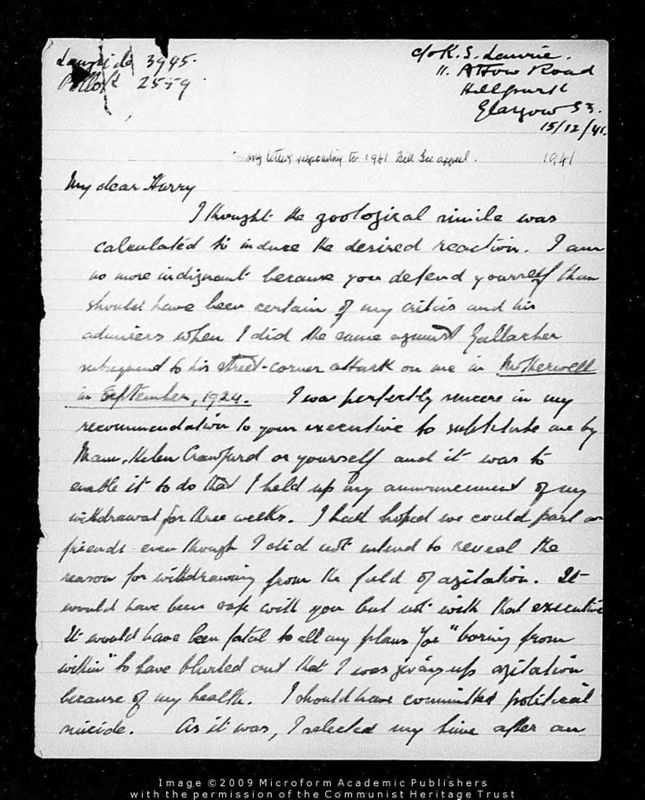 Laurie 3995.
Pollok 2559.
c/o K. S. Laurie.
11. Arrow Road
Hillpark
Glasgow S3.
15/12/41.
letter responding to 1941 appeal. 1941
My dear Harry
I thought the zoological simile was
calculated to induce the desired reaction. I am
no more indignant because you defend yourself than
should have been certain of my critics and his
admirers when I did the same against Gallacher
subsequent to his street-corner attack on me in Motherwell
in September, 1924. I was perfectly sincere in my
recommendation to your executive to substitute me by
Mann, Helen Crawfurd or yourself and it was to
enable it to do that I held up my announcement of my
withdrawal for three weeks. I had hoped we could part as
friends even though I did not intend to reveal the
reason for withdrawing from the field of agitation. It
would have been safe with you but not with that executive
It would have been fatal to all my plans for "boring from
within" to have blurted out that I was giving up agitation
because of my health. I should have committed political
suicide. As it was, I selected my time after an
Image ©2009 Microform Academic Publishers
with the permission of the Communist Heritage Trust